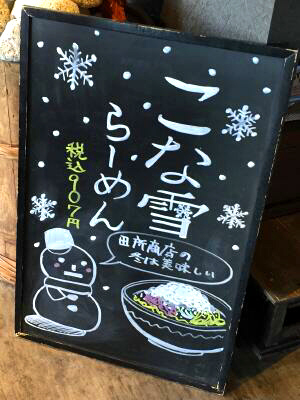 こな雪
らーめん
税込907円
田所商店の
冬は美味しい